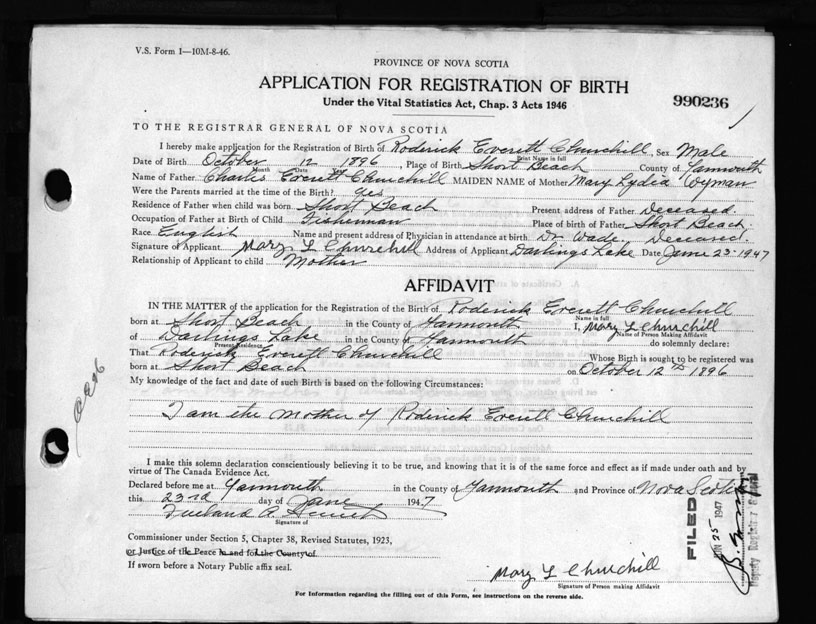 V.S. Form 1—10M-8-46.
PROVINCE OF NOVA SCOTIA
APPLICATION FOR REGISTRATION OF BIRTH
990236
Under the Vital Statistics Act, Chap. 3 Acts 1946
TO THE REGISTRAR GENERAL OF NOVA SCOTIA
I hereby make application for the Registration of Birth of Roderick Everett Churchill, Sex Male
Print Name in full
Date of Birth October 12 1896, Place of Birth Short Beach County of Yarmouth
Month Date
Name of Father Charles Everett Churchill MAIDEN NAME of Mother Mary Lydia Wyman
Were the Parents married at the time of the Birth? yes
Residence of Father when child was born. Short Beach Present address of Father Deceased.
Occupation of Father at Birth of Child Fisherman Place of birth of Father Short Beach
Race English Name and present address of Physician in attendance at birth Dr. Wade. Deceased.
Signature of Applicant Mary L Churchill Address of Applicant Darlings Lake Date June 23-1947
Relationship of Applicant to child Mother
AFFIDAVIT
IN THE MATTER of the application for the Registration of the Birth of Roderick Everett Churchill
Name in full
born at Short Beach in the County of Yarmouth I, Mary L Churchill
Name of Person Making Affidavit
of Darlings Lake in the County of Yarmouth do solemnly declare:
Present Residence
That Roderick Everett Churchill Whose Birth is sought to be registered was
born at Short Beach on October 12th 1896
My knowledge of the fact and date of such Birth is based on the following Circumstances:
I am the Mother of Roderick Everett Churchill
I make this solemn declaration conscientiously believing it to be true, and knowing that it is of the same force and effect as if made under oath and by
virtue of The Canada Evidence Act.
Declared before me at Yarmouth in the County of Yarmouth and Province of Nova Scotia
this 23rd day of June 1947
Signature of
Commissioner under Section 5, Chapter 38, Revised Statutes, 1923,
or Justice of the Peace in and for the County of.
If sworn before a Notary Public affix seal.
FILED
JUN 25 1947
Deputy Registrar General
Mary L Churchill
Signature of Person making Affidavit
For Information regarding the filling out of this Form, see instructions on the reverse side.